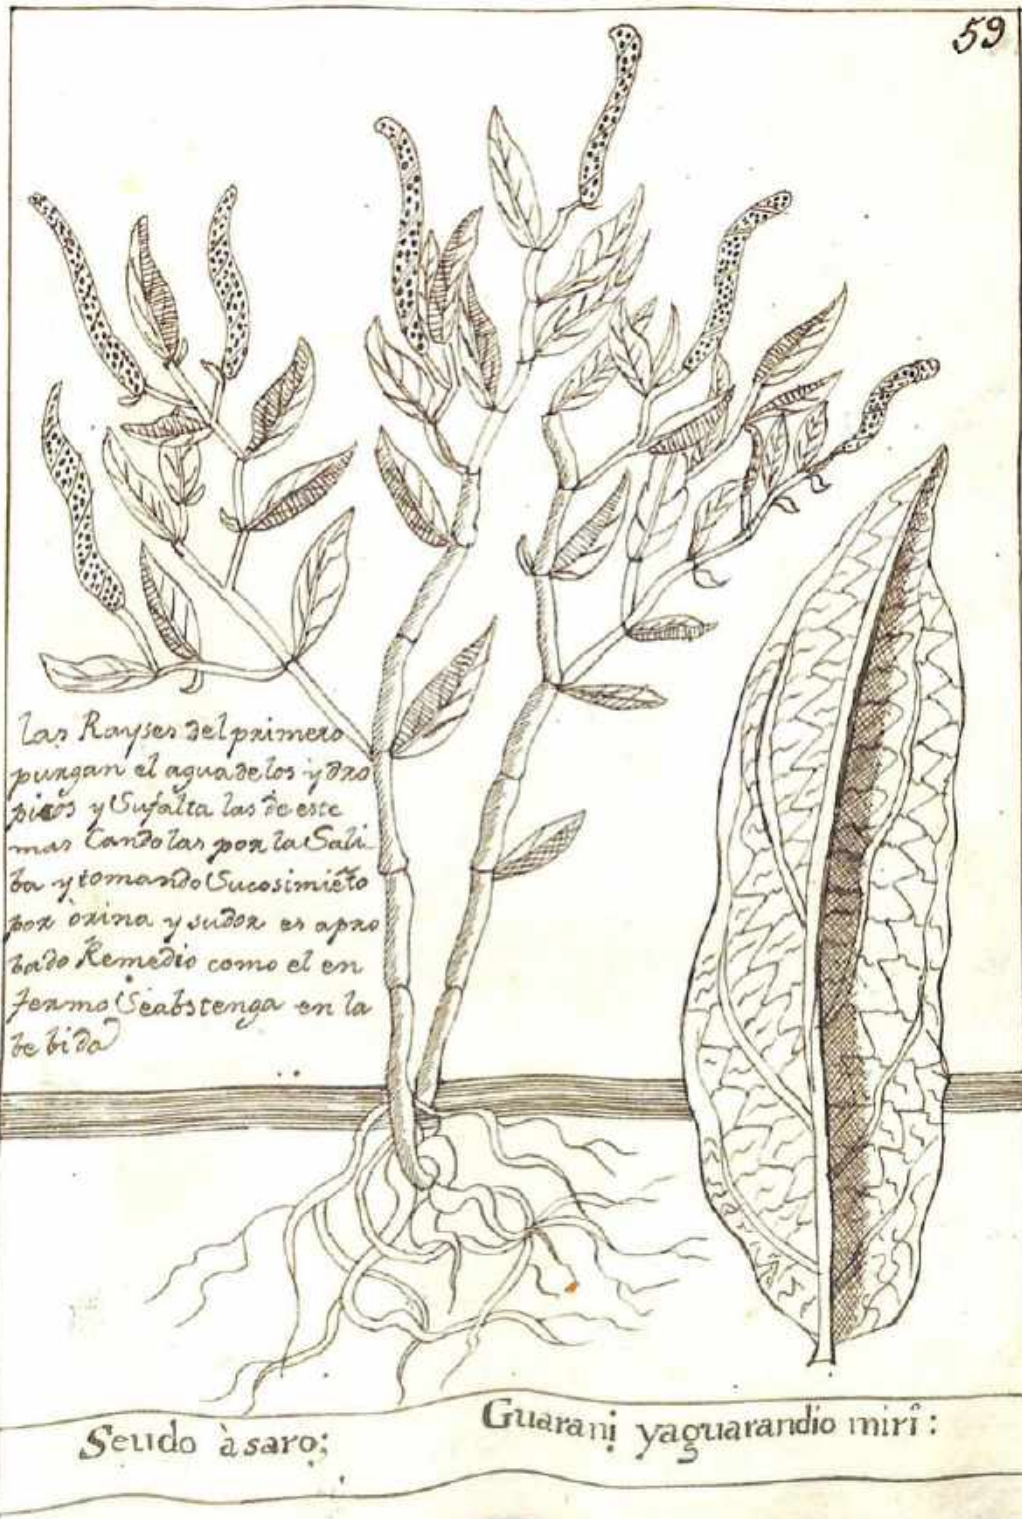 59
las Rayses del primero
purgan el agua de los ydro
picos y Sufalta las de este
mas Candolas por la Sali
ba y tomando Sucosimiẽto
por òrina y sudor es apro
bado Remedio como el en
fermo Seabstenga en la
bebida
Seudo àsaro;
Guarani yaguarandio mirî: